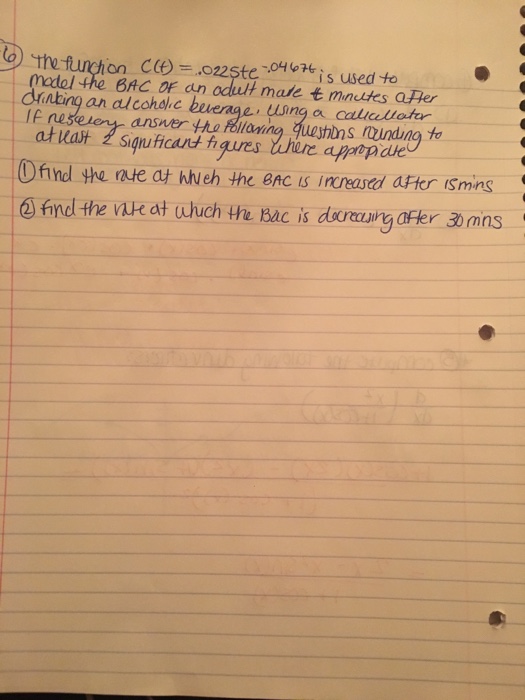 6) The function C(t) = .0225te^-.0467t is used to
model the BAC OF an adult male t minutes after
drinking an alcoholic beverage. Using a calculator
IF answer the following questions rounding to
at least 2 significant figures where appropiate
① find the rate at which the BAC is increased after 15 mins
② find the rate at which the Bac is decreasing after 30 mins